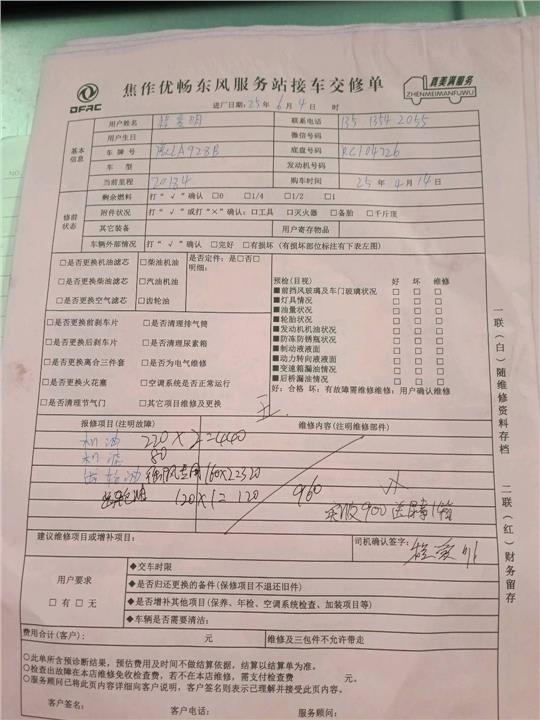 DFAC
焦作优畅东风服务站接车交修单
真美满服务
ZHENMEIMANFUWU
进厂日期：25年6月4日 时
用户姓名 联系电话 135 1354 2055
用户生日 微信号码
基本信息
车牌号 底盘号码 RC104726
车型 发动机号码
当前里程 20134 购车时间 25年4月14日
修前状态
剩余燃料 打“√”确认 □0 □1/4 □1/2 □1
附件状况 打“√”或打“×”确认：口工具 □灭火器 □备胎 □千斤顶
其它装备 用户寄存物品
车辆外部情况 打“√”确认 □完好 □有损坏（有损坏部位标注有下表左图）
□是否更换机油滤芯 □柴油机油 是否定件：是□否□
明细：
□是否更换柴油滤芯 □汽油机油
□是否更换空气滤芯 □齿轮油
预检(目视) 好 坏 维修
■前挡风玻璃及车门玻璃状况 □ □ □
■灯具情况 □ □ □
■油量状况 □ □ □
■轮胎状况 □ □ □
■发动机机油状况 □ □ □
■防冻防锈瓶状况 □ □ □
■制动液液面 □ □ □
■动力转向液液面 □ □ □
■变速箱漏油情况 □ □ □
■后桥漏油情况 □ □ □
好：合格 坏：有故障需维修维用：用户确认维修
□是否更换前刹车片 □是否清理排气筒
□是否更换后刹车片 □是否清理尿素箱
□是否更换离合三件套 □是否为电气维修
□是否更换火花塞 □空调系统是否正常运行
□是否清理节气门 □其它项目维修及更换
报修项目(注明故障) 维修内容(注明维修部件)
机油 220×2=440
机滤 80
齿轮油 160×2 320
120×1= 120 960
900
建议维修项目或增补项目： 司机确认签字：
用户要求
□有 □无
◆交车时限
◆是否归还更换的备件(保修项目不退还旧件)
◆是否增补其他项目(保养、年检、空调系统检查、加装项目等)
◆车辆是否需要清洁：
费用合计(客户)： 元 维修及三包件不允许带走
○此单所含预诊断结果，预估费用及时间不做结算依据，结算以结算单为准。
○检查出故障在本店维修免收检查费，若不在本店维修，需支付检查费 元。
○服务顾问已将此页内容详细向客户说明，客户签名则表示已理解并接受此页内容。
客户签名： 客户电话： 服务顾问：
一联(白)随维修资料存档
二联(红)财务留存